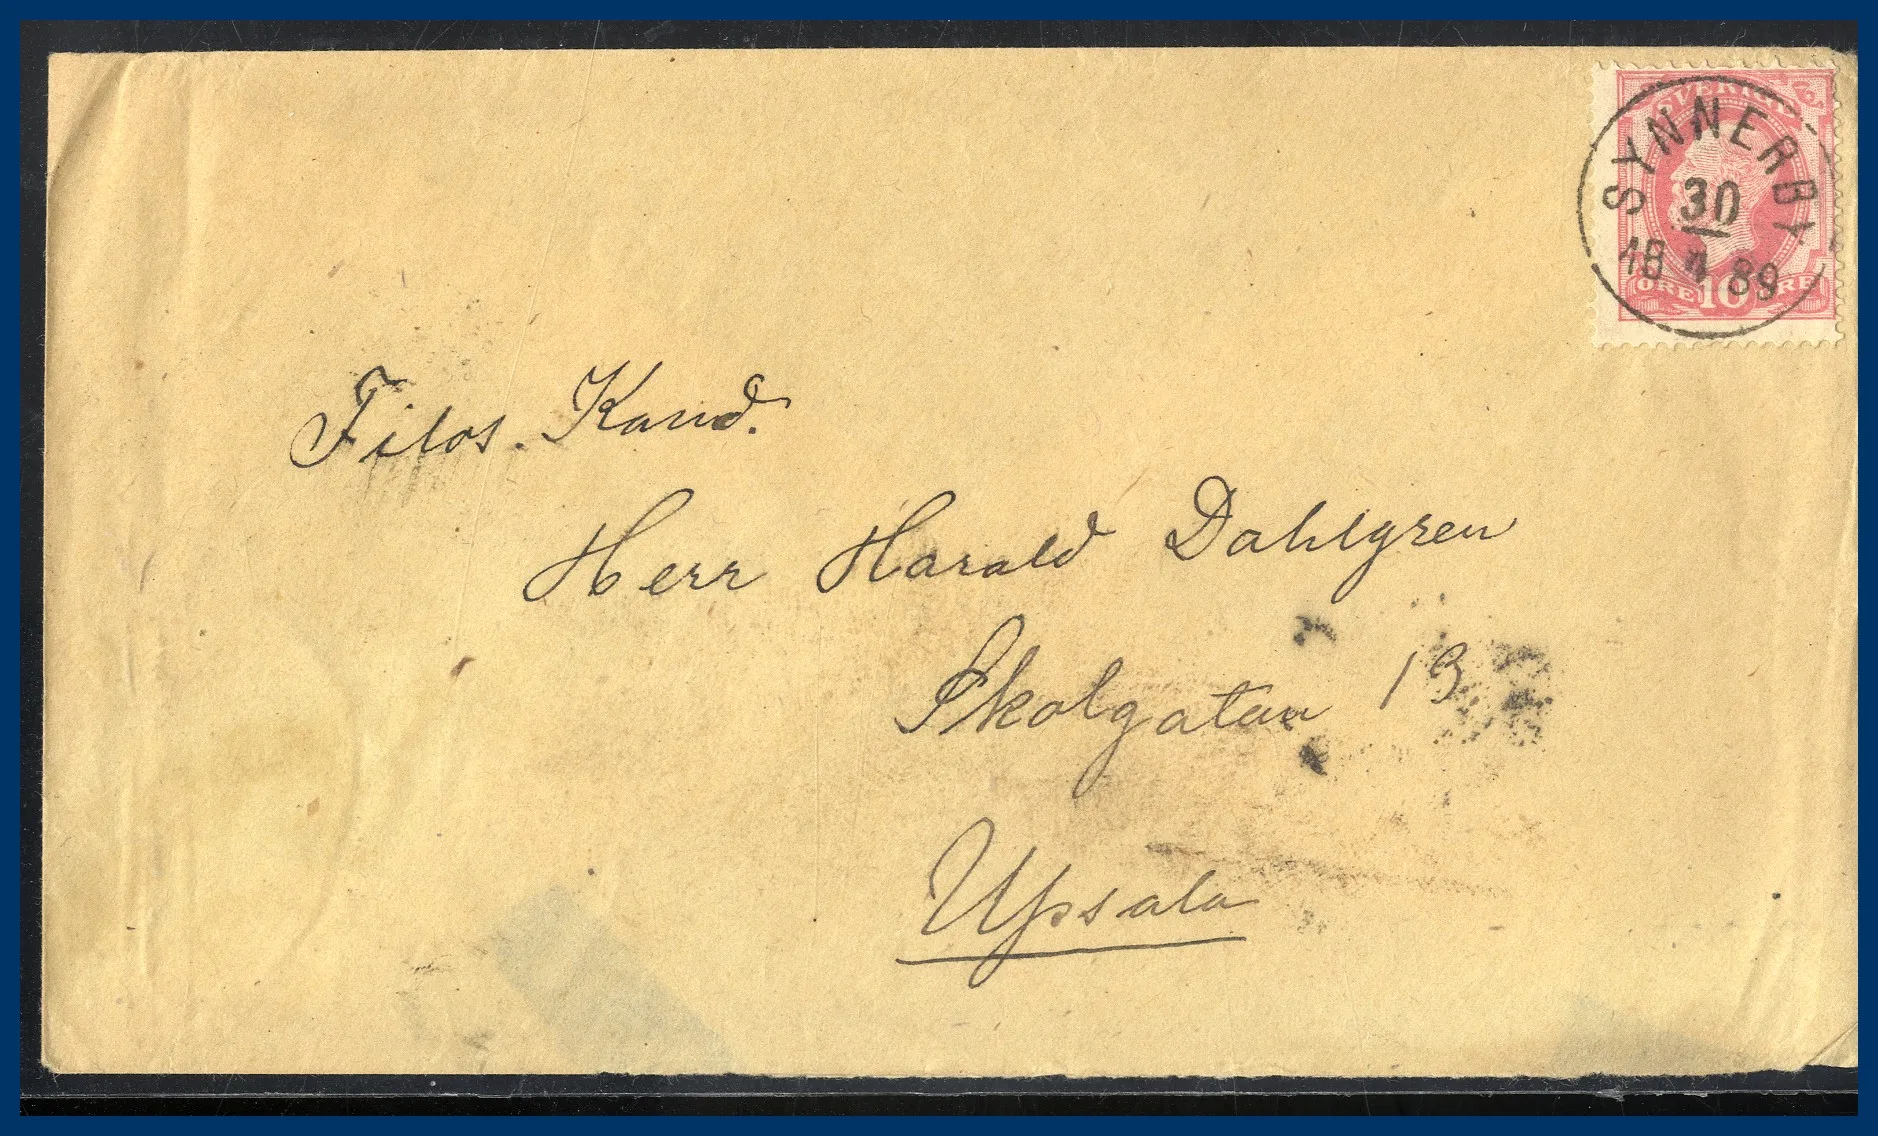 SVERIGE
SYNNERBY
30
18 4 89
ÖRE 10 ÖRE
Filos. Kand.
Herr Harald Dahlgren
Skolgatan 13
Upsala